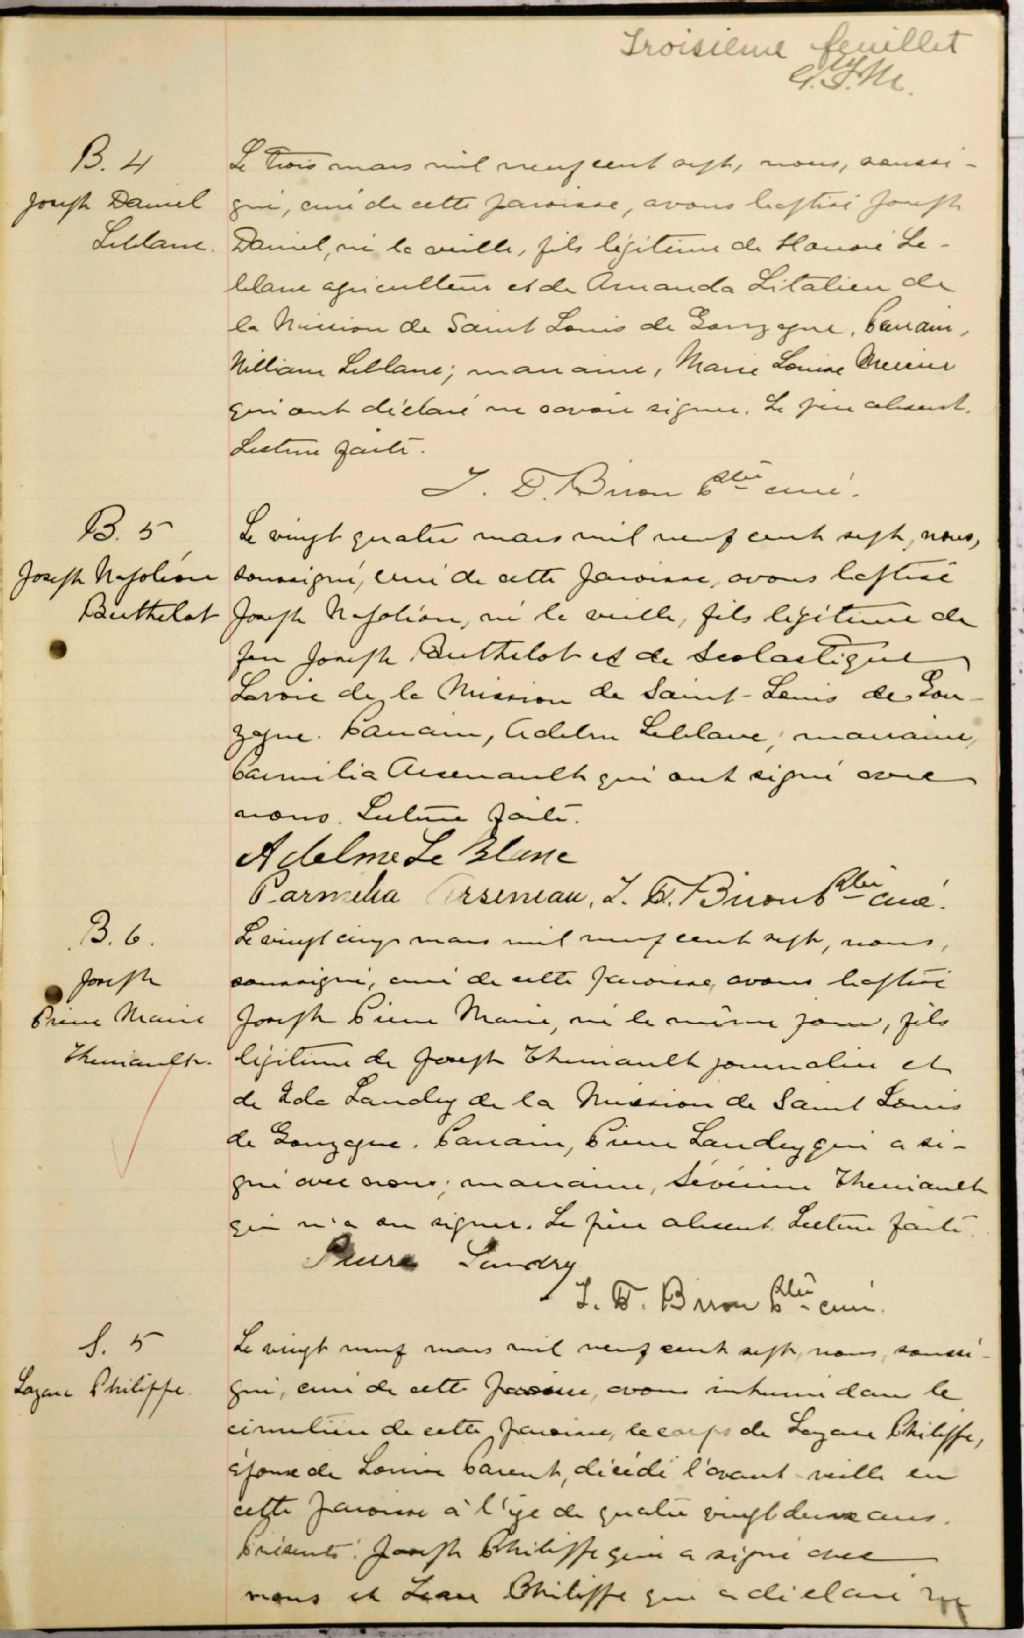 Troisième feuillet
B. 4
Joseph Daniel
Leblanc.
Le trois mars mil neuf cent sept, nous, soussi-
gné, curé de cette paroisse, avons baptisé Joseph
Daniel, né la veille, fils légitime de Honoré Le-
blanc agriculteur et de Amanda Litalien de
la Mission de Saint Louis de Gonzague. Parrain,
William Leblanc; marraine, Marie Louise
qui ont déclaré ne savoir signer. Le père absent.
Lecture faite.
J. D. Biron Ptre curé.
B. 5
Joseph Napoléon
Berthelot
Le vingt quatre mars mil neuf cent sept, nous,
soussigné, curé de cette paroisse, avons baptisé
Joseph Napoléon, né la veille, fils légitime de
feu Joseph Berthelot et de Scolastique
Lavoie de la Mission de Saint-Louis de Gon-
zague. Parrain, Adelme Leblanc; marraine,
Carmélia Arsenault qui ont signé avec
nous. Lecture faite.
Adelme Le Blanc
Parmelia Arseneau, J. D. Biron Ptre curé.
B. 6.
Joseph
Pierre Marie
Theriault.
Le vingt cinq mars mil neuf cent sept, nous,
soussigné, curé de cette paroisse, avons baptisé
Joseph Pierre Marie, né le même jour, fils
légitime de Joseph Theriault journalier et
de Ida Landry de la Mission de Saint Louis
de Gonzague. Parrain, Pierre Landry qui a si-
gné avec nous; marraine, Séverine Theriault
qui n'a su signer. Le père absent. Lecture faite.
Pierre Landry
J. D. Biron Ptre curé.
S. 5
Lazare Philippe.
Le vingt neuf mars mil neuf cent sept, nous, soussi-
gné, curé de cette paroisse, avons inhumé dans le
cimetière de cette paroisse, le corps de Lazare Philippe,
époux de Louise Parent, décédé l'avant-veille en
cette paroisse à l'âge de quatre vingt deux ans.
Présents: Joseph Philippe qui a signé avec
nous et Jean Philippe qui a déclaré ne